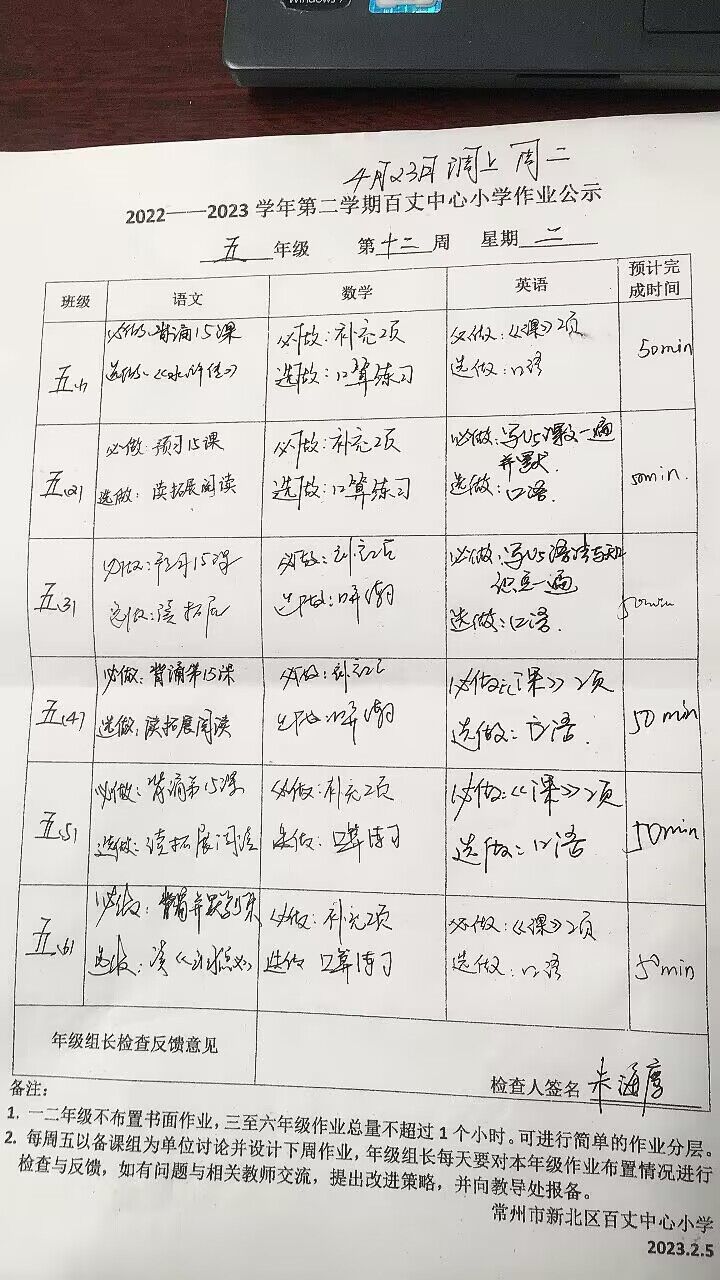 Windows 7
4月23日 调上 周二
2022——2023 学年第二学期百丈中心小学作业公示
五 年级 第 十二 周 星期 二
班级 语文 数学 英语 预计完成时间
五(1) 必做:背诵15课 必做:补充2页 必做:《课》2页 50min
选做:《水浒传》 选做:口算练习 选做:口语
五(2) 必做:预习15课 必做:补充2页 必做:写U5课文一遍并默. 50min.
选做:读拓展阅读 选做:口算练习 选做:口语.
五(3) 必做:预习15课 必做:补充2页 必做:写U5语法与知识点一遍 50min
选做:读拓展 选做:口算 选做:口语.
五(4) 必做:背诵第15课 必做:补充2页 必做:《课》2页 50min
选做:读拓展阅读 选做:口算 选做:口语.
五(5) 必做:背诵第15课 必做:补充2页 必做:《课》2页 50min
选做:读拓展阅读 选做:口算练习 选做:口语
五(6) 必做:背诵 必做:补充2页 必做:《课》2页 50min
选做:读 选做 口算练习 选做:口语
年级组长检查反馈意见
检查人签名 朱海霞
备注:
1. 一二年级不布置书面作业,三至六年级作业总量不超过 1 个小时。可进行简单的作业分层。
2. 每周五以备课组为单位讨论并设计下周作业,年级组长每天要对本年级作业布置情况进行
检查与反馈,如有问题与相关教师交流,提出改进策略,并向教导处报备。
常州市新北区百丈中心小学
2023.2.5